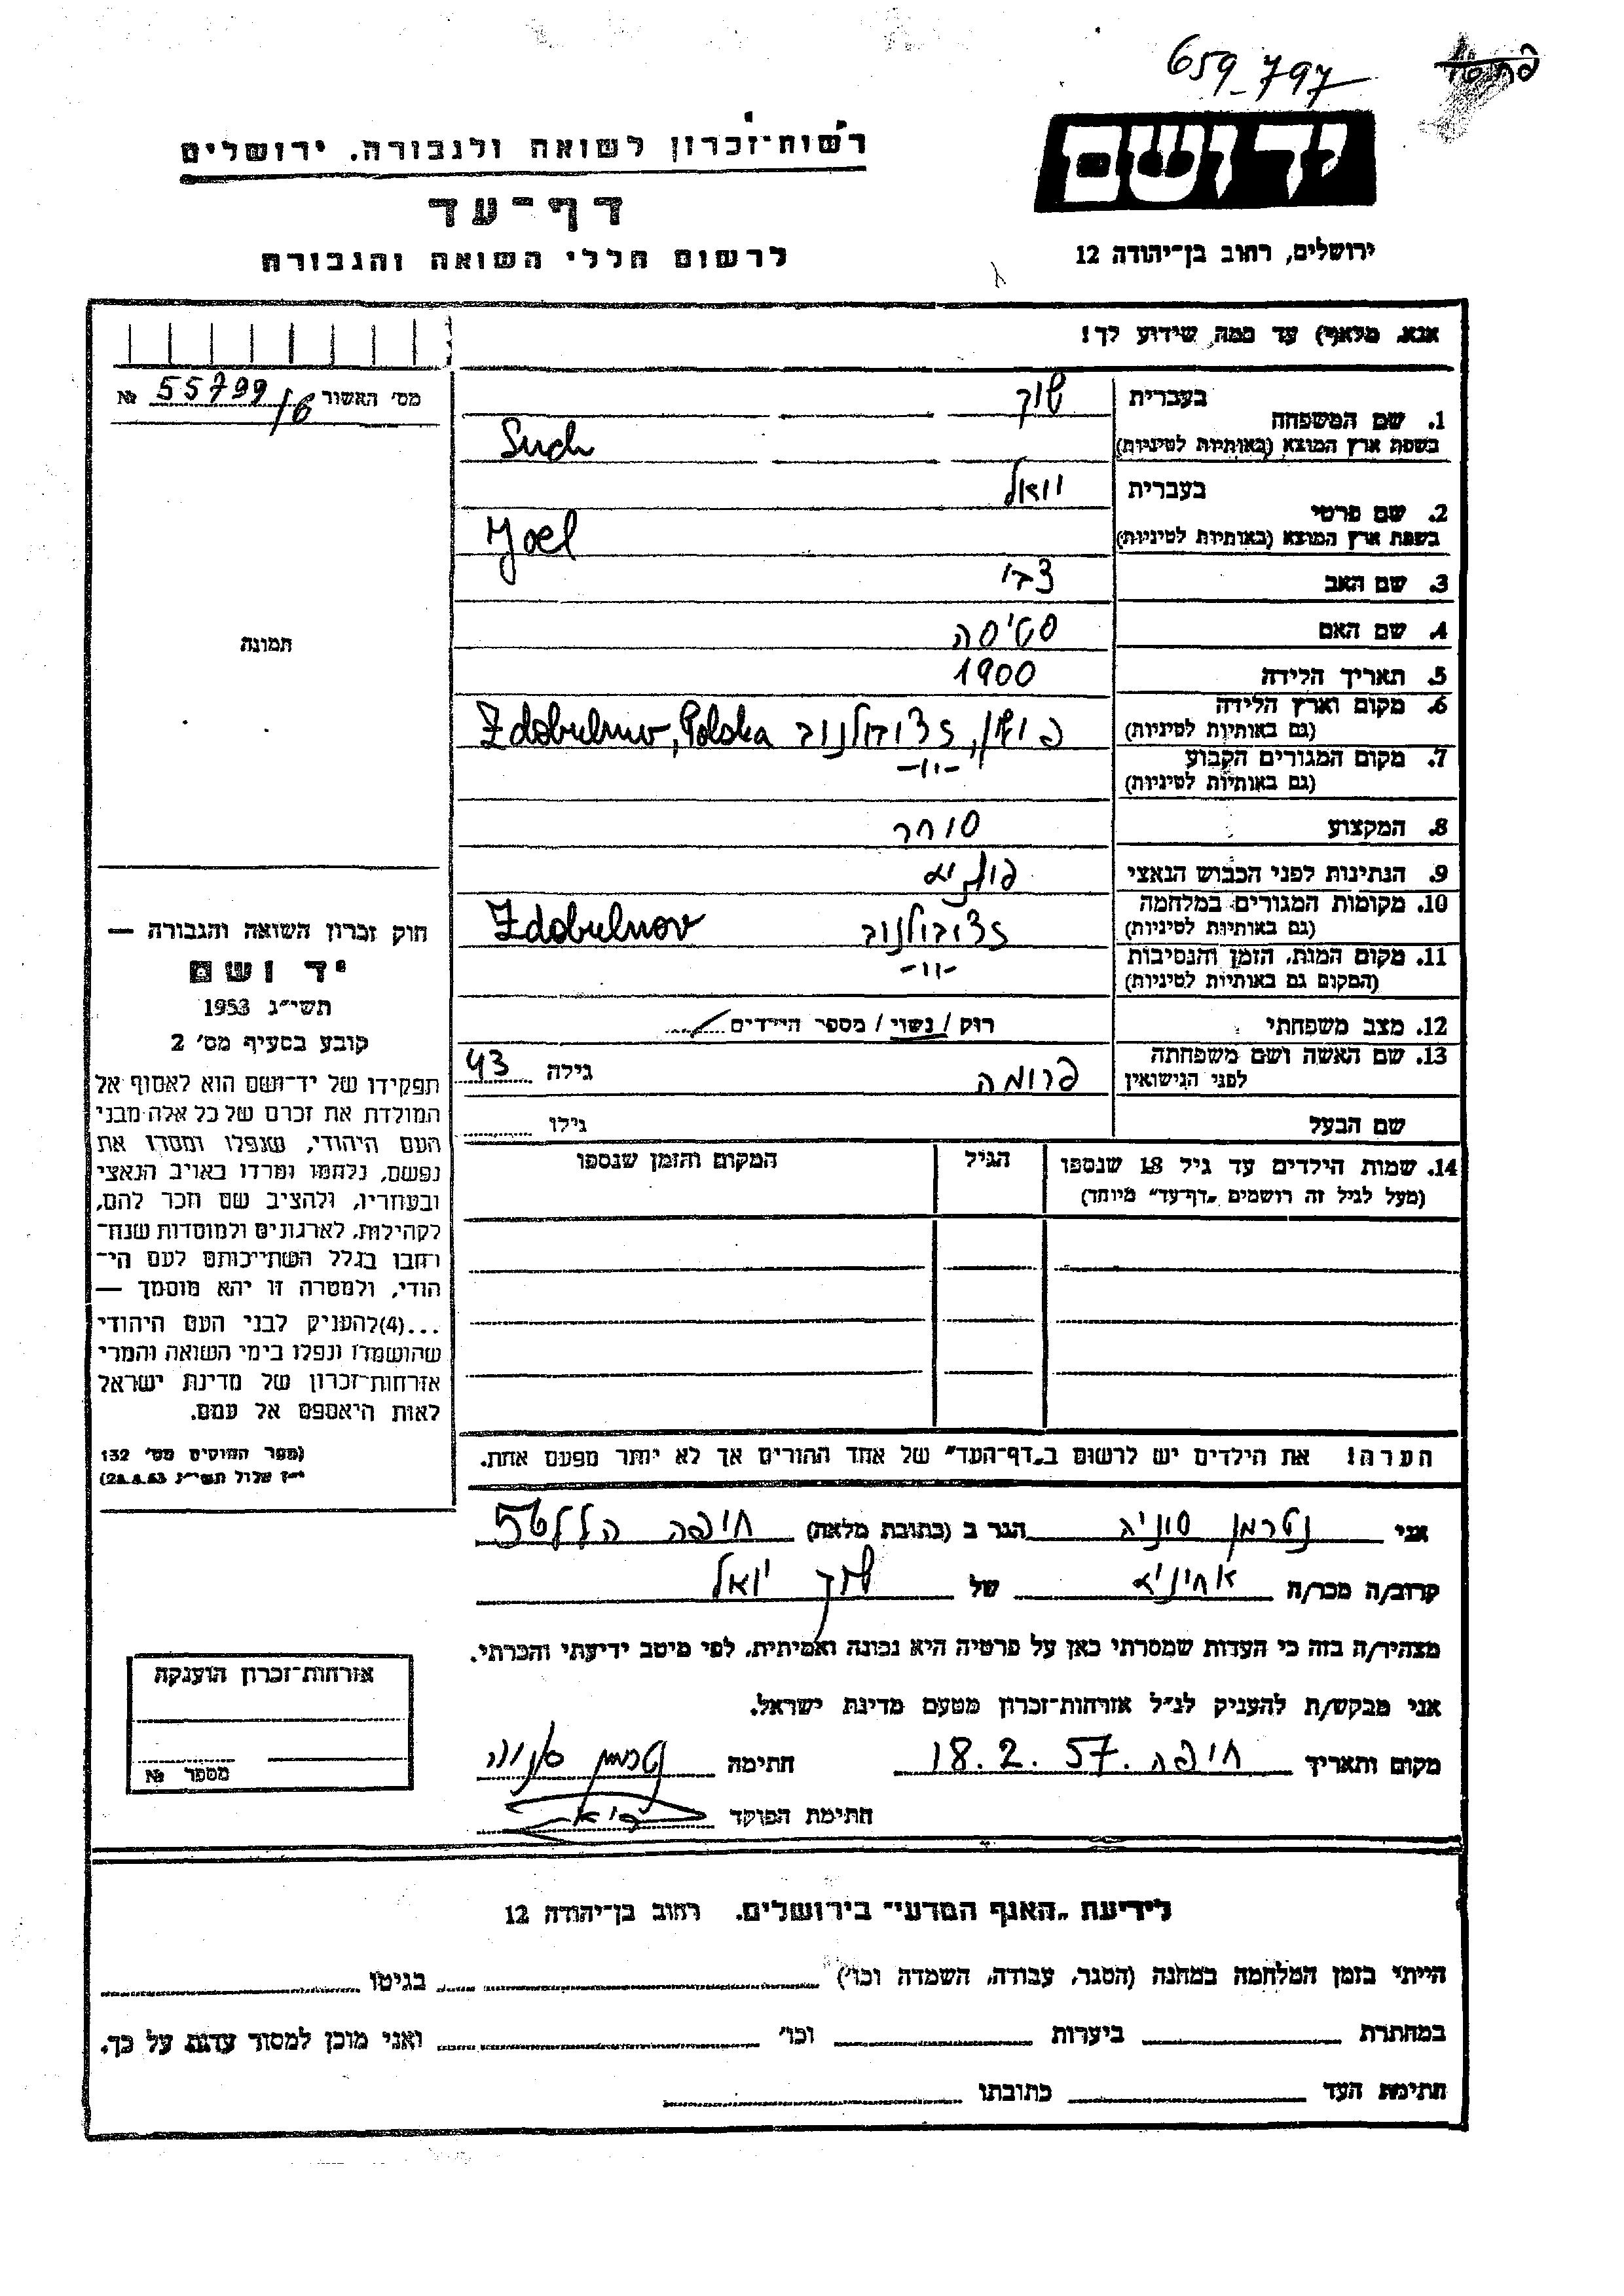 659-797
יד ושם
רשות־זכרון לשואה ולגבורה, ירושלים
דף־עד
לרשום חללי השואה והגבורה
ירושלים, רחוב בן־יהודה 12
אנא, מלא(י) עד כמה שידוע לך!
מס' האשור 55799/6 №
תמונה
1. שם המשפחה
בעברית שוך
בשפת ארץ המוצא (באותיות לטיניות) Such
2. שם פרטי
בעברית יואל
בשפת ארץ המוצא (באותיות לטיניות) Joel
3. שם האב צבי
4. שם האם סטיסה
5. תאריך הלידה 1900
6. מקום וארץ הלידה
(גם באותיות לטיניות) פולין, זדולבונוב Zdobulnow, Polska
7. מקום המגורים הקבוע -"-
(גם באותיות לטיניות)
8. המקצוע סוחר
9. הנתינות לפני הכבוש הנאצי פולניא
10. מקומות המגורים במלחמה
(גם באותיות לטיניות) Zdobulnov
11. מקום המות, הזמן והנסיבות -"-
(המקום גם באותיות לטיניות)
12. מצב משפחתי רוק / נשוי / מספר הילדים
13. שם האשה ושם משפחתה
לפני הנישואין פרומה גילה 43
שם הבעל גילו
14. שמות הילדים עד גיל 18 שנספו הגיל המקום והזמן שנספו
(מעל לגיל זה רושמים „דף־עד" מיוחד)
הערה! את הילדים יש לרשום ב„דף־העד" של אחד ההורים אך לא יותר מפעם אחת.
חוק זכרון השואה והגבורה —
יד ושם
תשי"ג 1953
קובע בסעיף מס' 2
תפקידו של יד־ושם הוא לאסוף אל
המולדת את זכרם של כל אלה מבני
העם היהודי, שנפלו ומסרו את
נפשם, נלחמו ומרדו באויב הנאצי
ובעוזריו, ולהציב שם וזכר להם,
לקהילות, לארגונים ולמוסדות שנח־
רבו בגלל השתייכותם לעם הי־
הודי, ולמטרה זו יהא מוסמך —
...(4)להעניק לבני העם היהודי
שהושמדו ונפלו בימי השואה והמרי
אזרחות־זכרון של מדינת ישראל
לאות היאספם אל עמם.
(ספר החוקים מס' 132
י"ז אלול תשי"ג 28.8.53)
אני נטרמן סוניה הגר ב (כתובת מלאה) חיפה הלל 56
קרוב/ה מכר/ה אחינית של שוך יואל
מצהיר/ה בזה כי העדות שמסרתי כאן על פרטיה היא נכונה ואמיתית, לפי מיטב ידיעתי והכרתי.
אני מבקש/ת להעניק לנ"ל אזרחות־זכרון מטעם מדינת ישראל.
מקום ותאריך חיפה 18.2.57. חתימה נטרמן סוניה
חתימת הפוקד
אזרחות־זכרון הוענקה
מספר №
לידיעת „האגף המדעי" בירושלים, רחוב בן־יהודה 12
הייתי בזמן המלחמה במחנה (הסגר, עבודה, השמדה וכו') בגיטו
במחתרת ביערות וכו' ואני מוכן למסור עדות על כך.
חתימת העד כתובתו